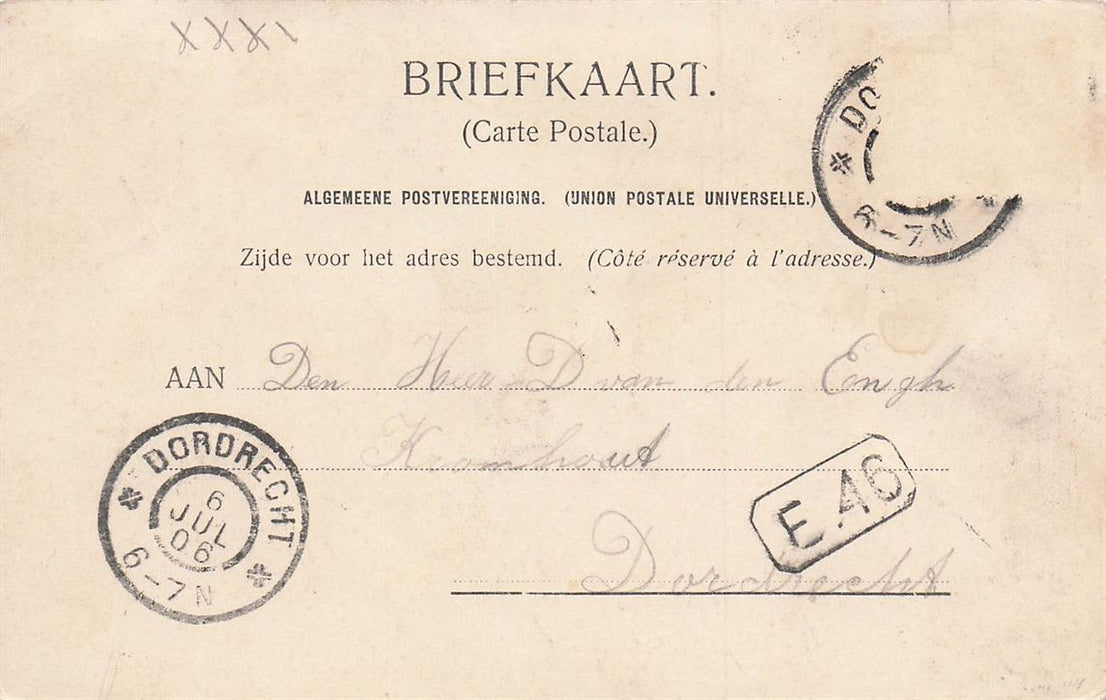 XXX
BRIEFKAART.
(Carte Postale.)
DO
6-7N
ALGEMEENE POSTVEREENIGING. (UNION POSTALE UNIVERSELLE.)
Zijde voor het adres bestemd. (Côté réservé à l'adresse.)
AAN Den Heer D van den Engh
Kromhout
DORDRECHT
6
JUL
06
6-7N
E.46
Dordrecht